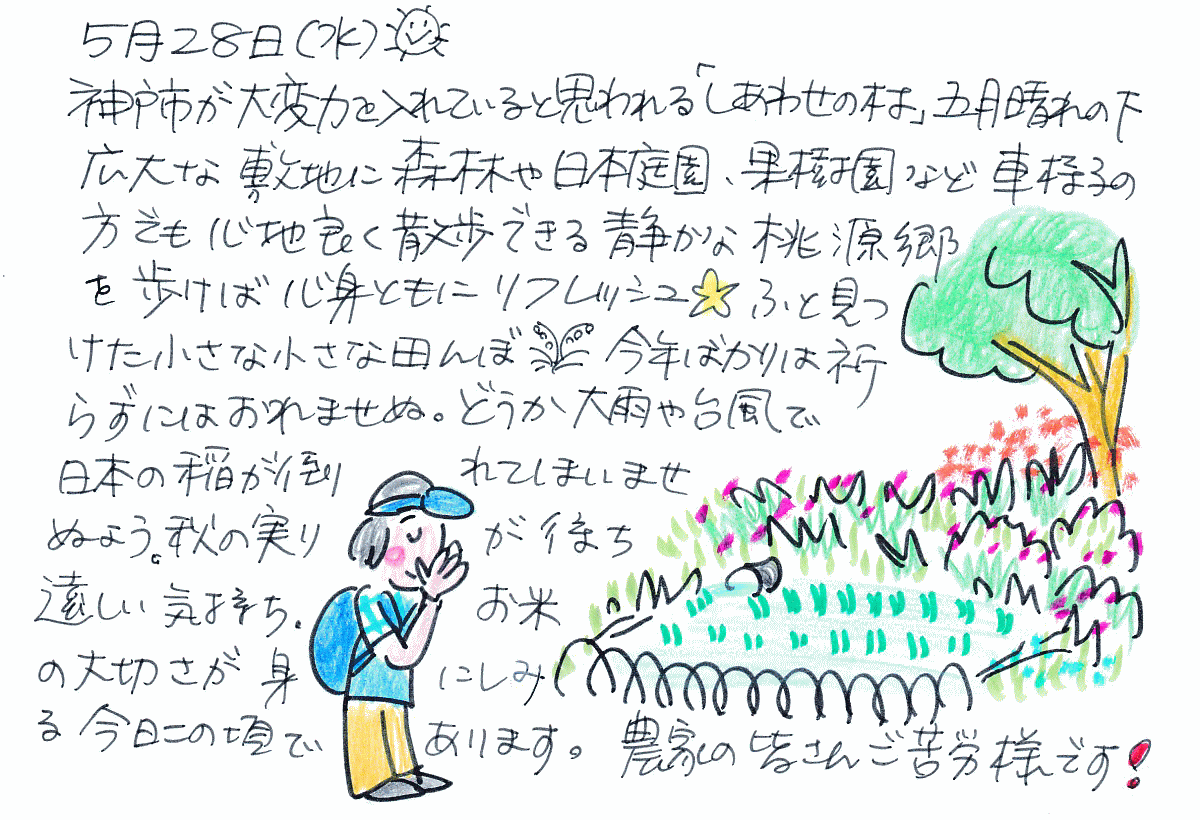 5月28日(水)
神戸市が大変力を入れていると思われる「しあわせの村」五月晴れの下
広大な敷地に森林や日本庭園、果樹園など車椅子の
方でも心地良く散歩できる静かな桃源郷
を歩けば心身ともにリフレッシュ☆ふと見つ
けた小さな小さな田んぼ 今年ばかりは祈
らずにはおれませぬ。どうか大雨や台風で
日本の稲が倒れてしまいませ
ぬよう。秋の実りが待ち
遠しい気持ち。お米
の大切さが身にしみ
る今日この頃であります。農家の皆さんご苦労様です!